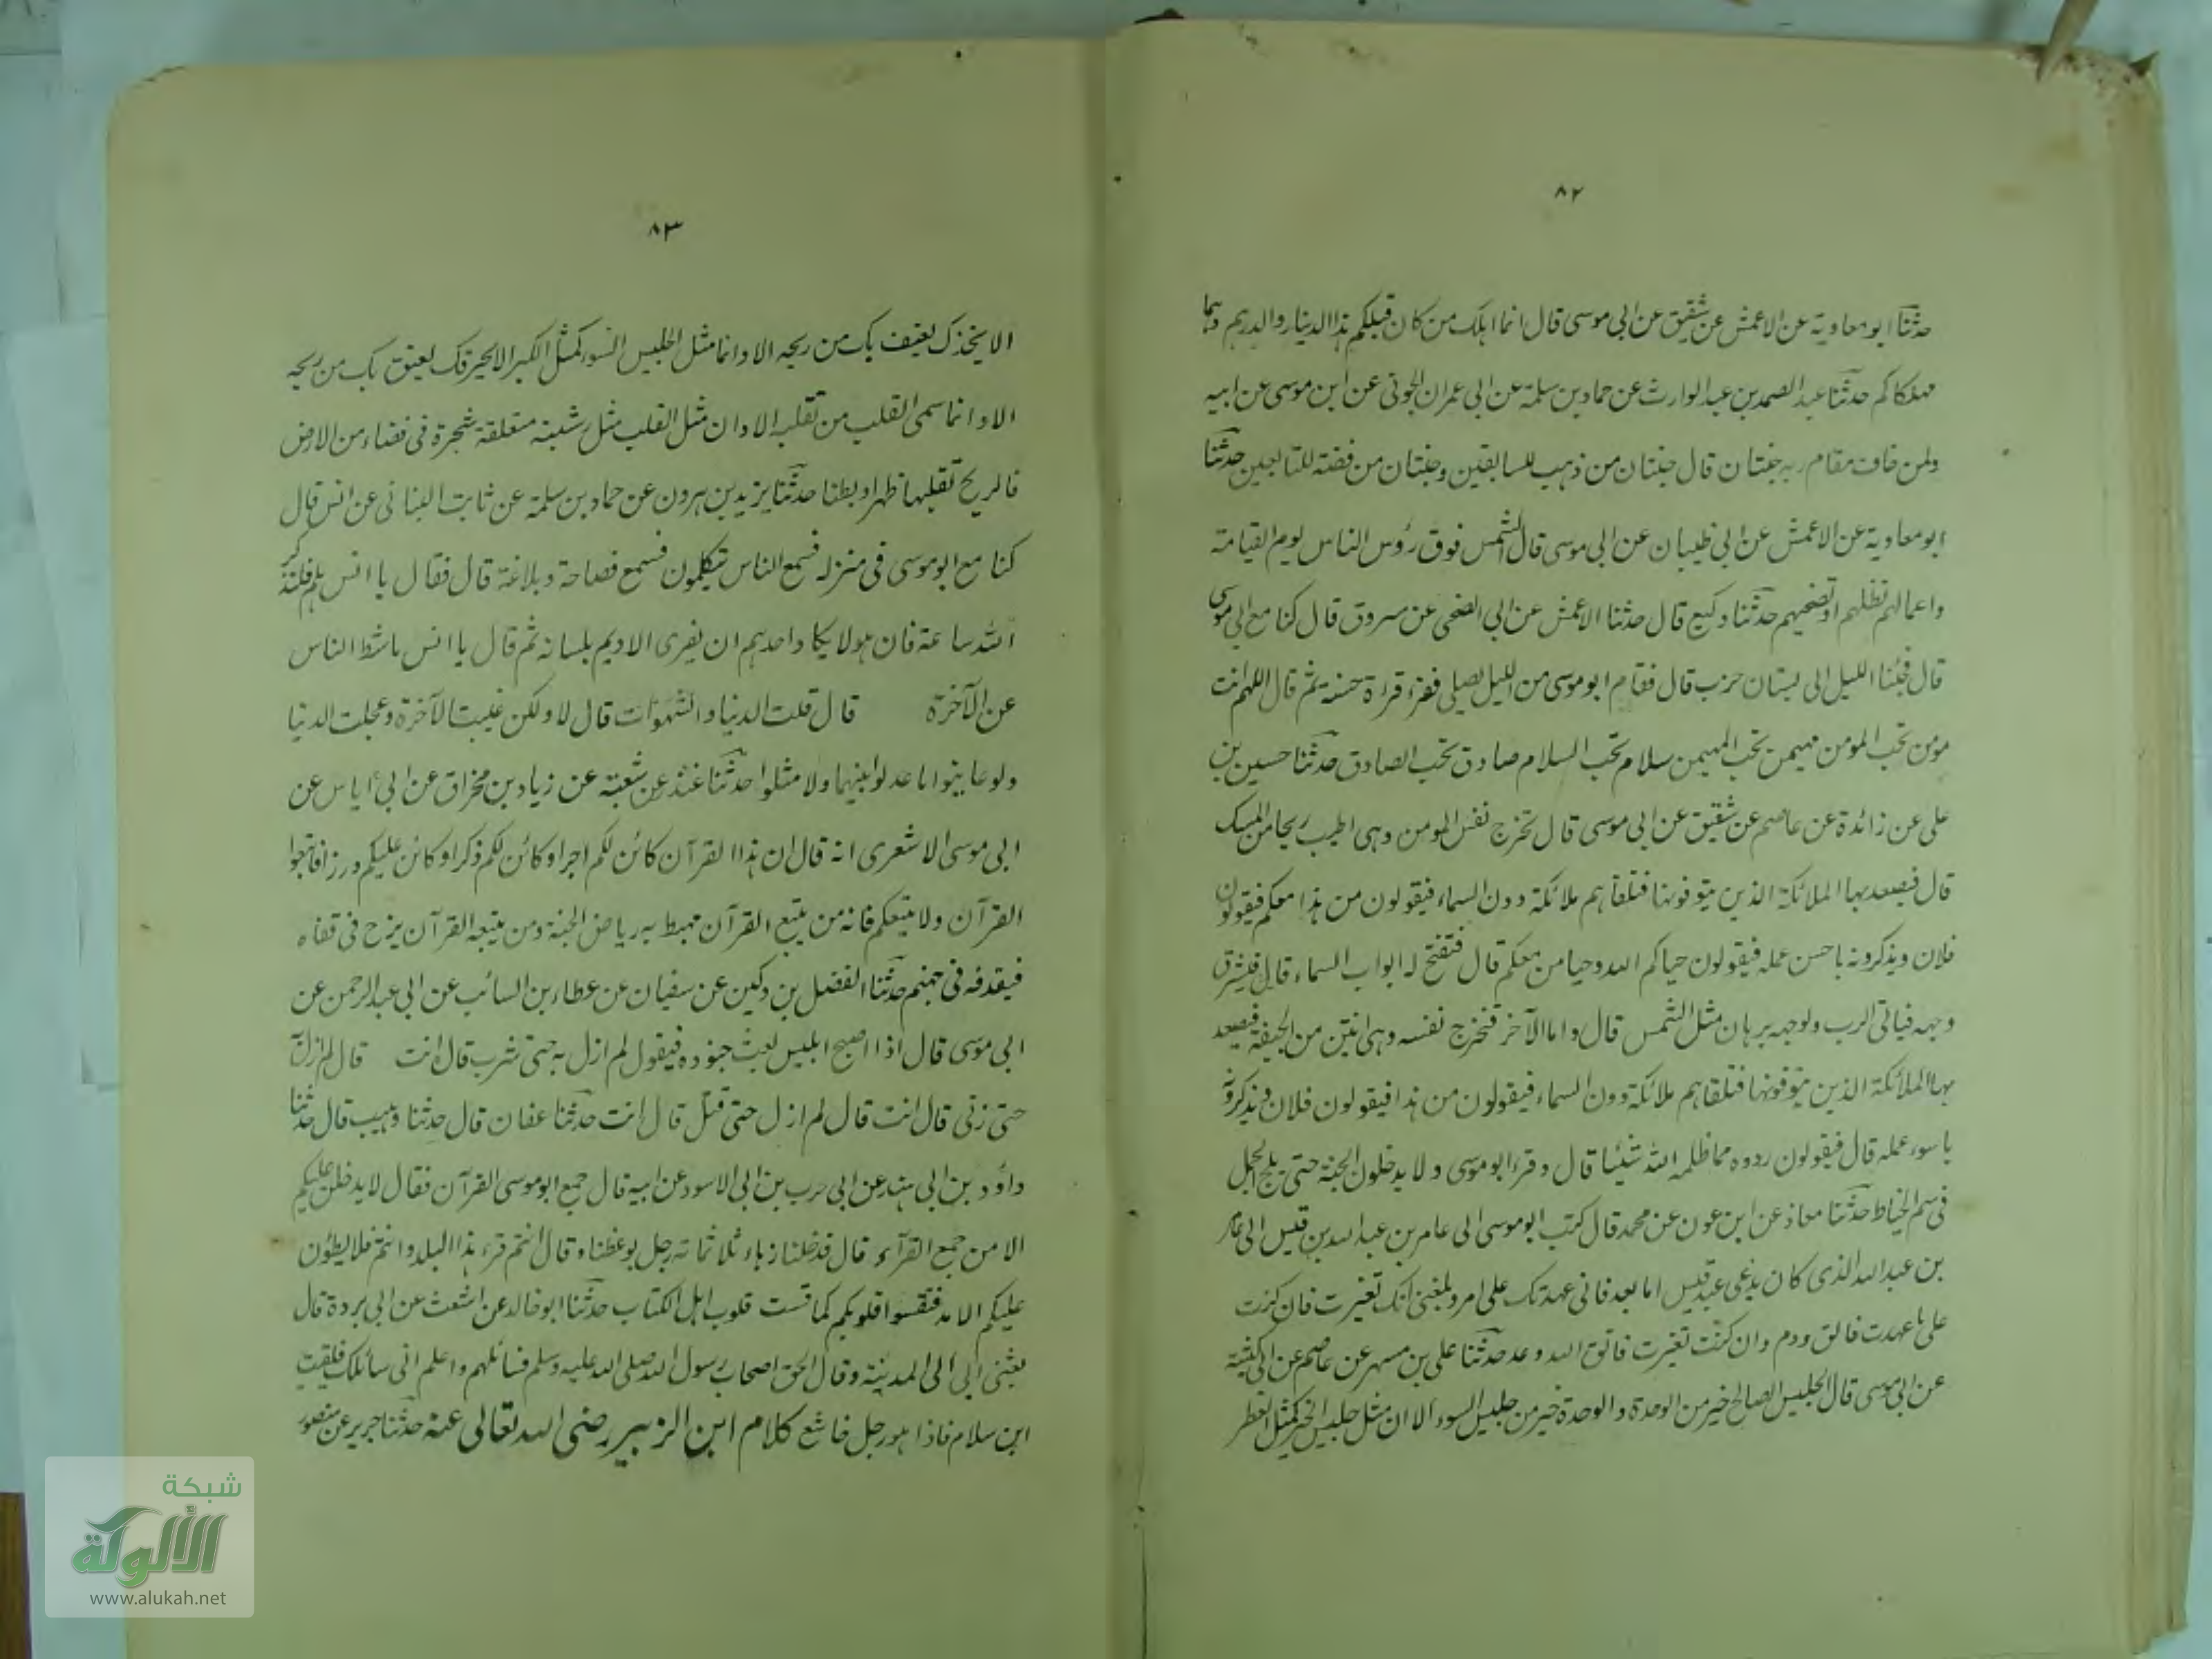 ٨٢
حدثنا ابو معاوية عن الاعمش عن شقيق عن ابى موسى قال انما اهلك من كان قبلكم هذا الدينار والدرهم وهما
مهلكاكم حدثنا عبد الصمد بن عبد الوارث عن حماد بن سلمة عن ابى عمران الجونى عن ابن موسى عن ابيه
ولمن خاف مقام ربه جنتان قال جنتان من ذهب للسابقين وجنتان من فضة للتابعين حدثنا
ابو معاوية عن الاعمش عن ابى ظبيان عن ابى موسى قال الشمس فوق رؤس الناس يوم القيامة
واعمالهم تظلهم او تضحيهم حدثنا وكيع قال حدثنا الاعمش عن ابى الضحى عن مسروق قال كنا مع ابى موسى
قال فجئنا الليل الى بستان خرب قال فقام ابو موسى من الليل يصلى فقرء قراءة حسنة ثم قال اللهم انت
مومن تحب المومن مهيمن تحب المهيمن سلام تحب السلام صادق تحب الصادق حدثنا حسين بن
على عن زائدة عن عاصم عن شقيق عن ابى موسى قال تخرج نفس المومن وهى اطيب ريحا من المسك
قال فيصعد بها الملائكة الذين يتوفونها فتلقاهم ملائكة دون السماء فيقولون من هذا معكم فيقولون
فلان ويذكرونه باحسن عمله فيقولون حياكم الله وحيا من معكم قال فتفتح له ابواب السماء قال فيشرق
وجهه فياتى الرب ولوجهه برهان مثل الشمس قال واما الآخر فتخرج نفسه وهى انتن من الجيفة فيصعد
بها الملائكة الذين يتوفونها فتلقاهم ملائكة دون السماء فيقولون من هذا فيقولون فلان ويذكرونه
باسوء عمله قال فيقولون ردوه فما ظلمه الله شيئا قال وقرء ابو موسى ولا يدخلون الجنة حتى يلج الجمل
فى سم الخياط حدثنا معاذ عن ابن عون عن محمد قال كتب ابو موسى الى عامر بن عبد الله بن قيس الى عامر
بن عبد الله الذى كان يدعى عبد قيس اما بعد فانى عهدتك على امر وبلغنى انك تغيرت فان كنت
على ما عهدت فاتق ودم وان كنت تغيرت فاتق الله وعد حدثنا على بن مسهر عن عاصم عن ابى كبشة
عن ابى موسى قال الجليس الصالح خير من الوحدة والوحدة خير من جليس السوء الا ان مثل جليس الخير كمثل العطر
٨٣
الا يحذك يعبق بك من ريحه الا وانما مثل الجليس السوء كمثل الكير الا يحرقك يعبق بك من ريحه
الا وانما سمى القلب من تقلبه الا وان مثل القلب مثل ريشة متعلقة شجرة فى فضاء من الارض
فالريح تقلبها ظهرا وبطنا حدثنا يزيد بن هرون عن حماد بن سلمة عن ثابت البنانى عن انس قال
كنا مع ابو موسى فى منزله فسمع الناس يتكلمون فسمع فصاحة وبلاغة قال فقال يا انس هلم فلنذكر
الله ساعة فان هولا يكاد احدهم ان يفرى الاديم بلسانه ثم قال يا انس ما ثبط الناس
عن الآخرة قال قلت الدنيا والشهوات قال لا ولكن غيبت الآخرة وعجلت الدنيا
ولو عاينوا ما عدلوا بينهما ولا مثلوا حدثنا غندر عن شعبة عن زياد بن مخراق عن ابى اياس عن
ابى موسى الاشعرى انه قال ان هذا القرآن كائن لكم اجرا وكائن لكم ذكرا وكائن عليكم وزرا فاتبعوا
القرآن ولا يتبعكم فانه من يتبع القرآن تهبط به رياض الجنة ومن يتبعه القرآن يزخ فى قفاه
فيقذفه فى جهنم حدثنا الفضل بن دكين عن سفيان عن عطاء بن السائب عن ابى عبد الرحمن عن
ابى موسى قال اذا اصبح ابليس بعث جنوده فيقول لم ازل به حتى شرب قال انت قال لم ازل به
حتى زنى قال انت قال لم ازل حتى قتل قال انت حدثنا عفان قال حدثنا وهيب قال حدثنا
داؤد بن ابى هند عن ابى حرب بن ابى الاسود عن ابيه قال جمع ابو موسى القرآن فقال لا يدخلن عليكم
الا من جمع القرآن قال فدخلنا زهاء ثلاثمائة رجل بوعظنا وقال انتم قراء هذا البلد وانتم فلا يطؤن
عليكم الامد فتقسوا قلوبكم كما قست قلوب اهل الكتاب حدثنا ابو خالد عن اشعث عن ابى بردة قال
بعثنى ابى الى المدينة وقال الحق اصحاب رسول الله صلى الله عليه وسلم فسائلهم واعلم انى سائلك فلقيت
ابن سلام فاذا هو رجل خاشع كلام ابن الزبير رضى الله تعالى عنه حدثنا جرير عن منصور
شبكة
الألوكة
www.alukah.net